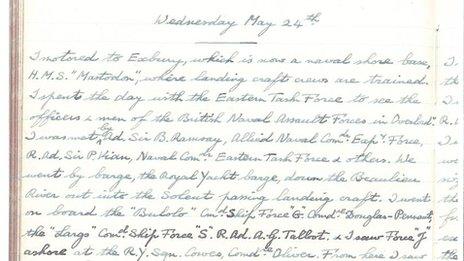 Wednesday May 24th
I motored to Exbury, which is now a naval shore base,
H.M.S. "Mastodon", where landing craft crews are trained.
I spent the day with the Eastern Task Force to see the
officers & men of the British Naval Assault Forces in Overlord.
I was met by Ad. Sir B. Ramsay, Allied Naval Comdr Expy. Force,
R. Ad. Sir P. Vian, Naval Comdr Eastern Task Force & others. We
went by barge, the Royal Yacht barge, down the Beaulieu
River out into the Solent passing landing craft. I went
on board the "Bulolo" Comd. Ship Force "G". Comdre Douglas-Pennant,
the "Largs" Comd. Ship Force "S". R. Ad. A.G. Talbot, & I saw Force "J"
ashore at the R.Y. Sqn. Cowes, Comdre Oliver. From here I saw